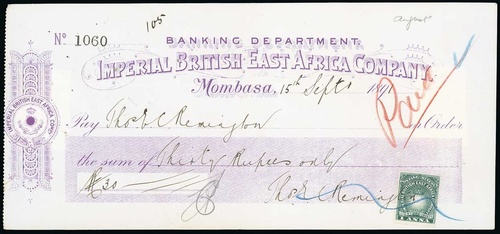 August
105
BANKING DEPARTMENT
No 1060
IMPERIAL BRITISH EAST AFRICA COMPANY
Mombasa, 15th Sept 189
Paid
Pay Thos E C Remington or Order
the sum of Thirty Rupees only
R 30
Thos E C Remington
IMPERIAL BRITISH EAST AFRICA COMPY
ANNA